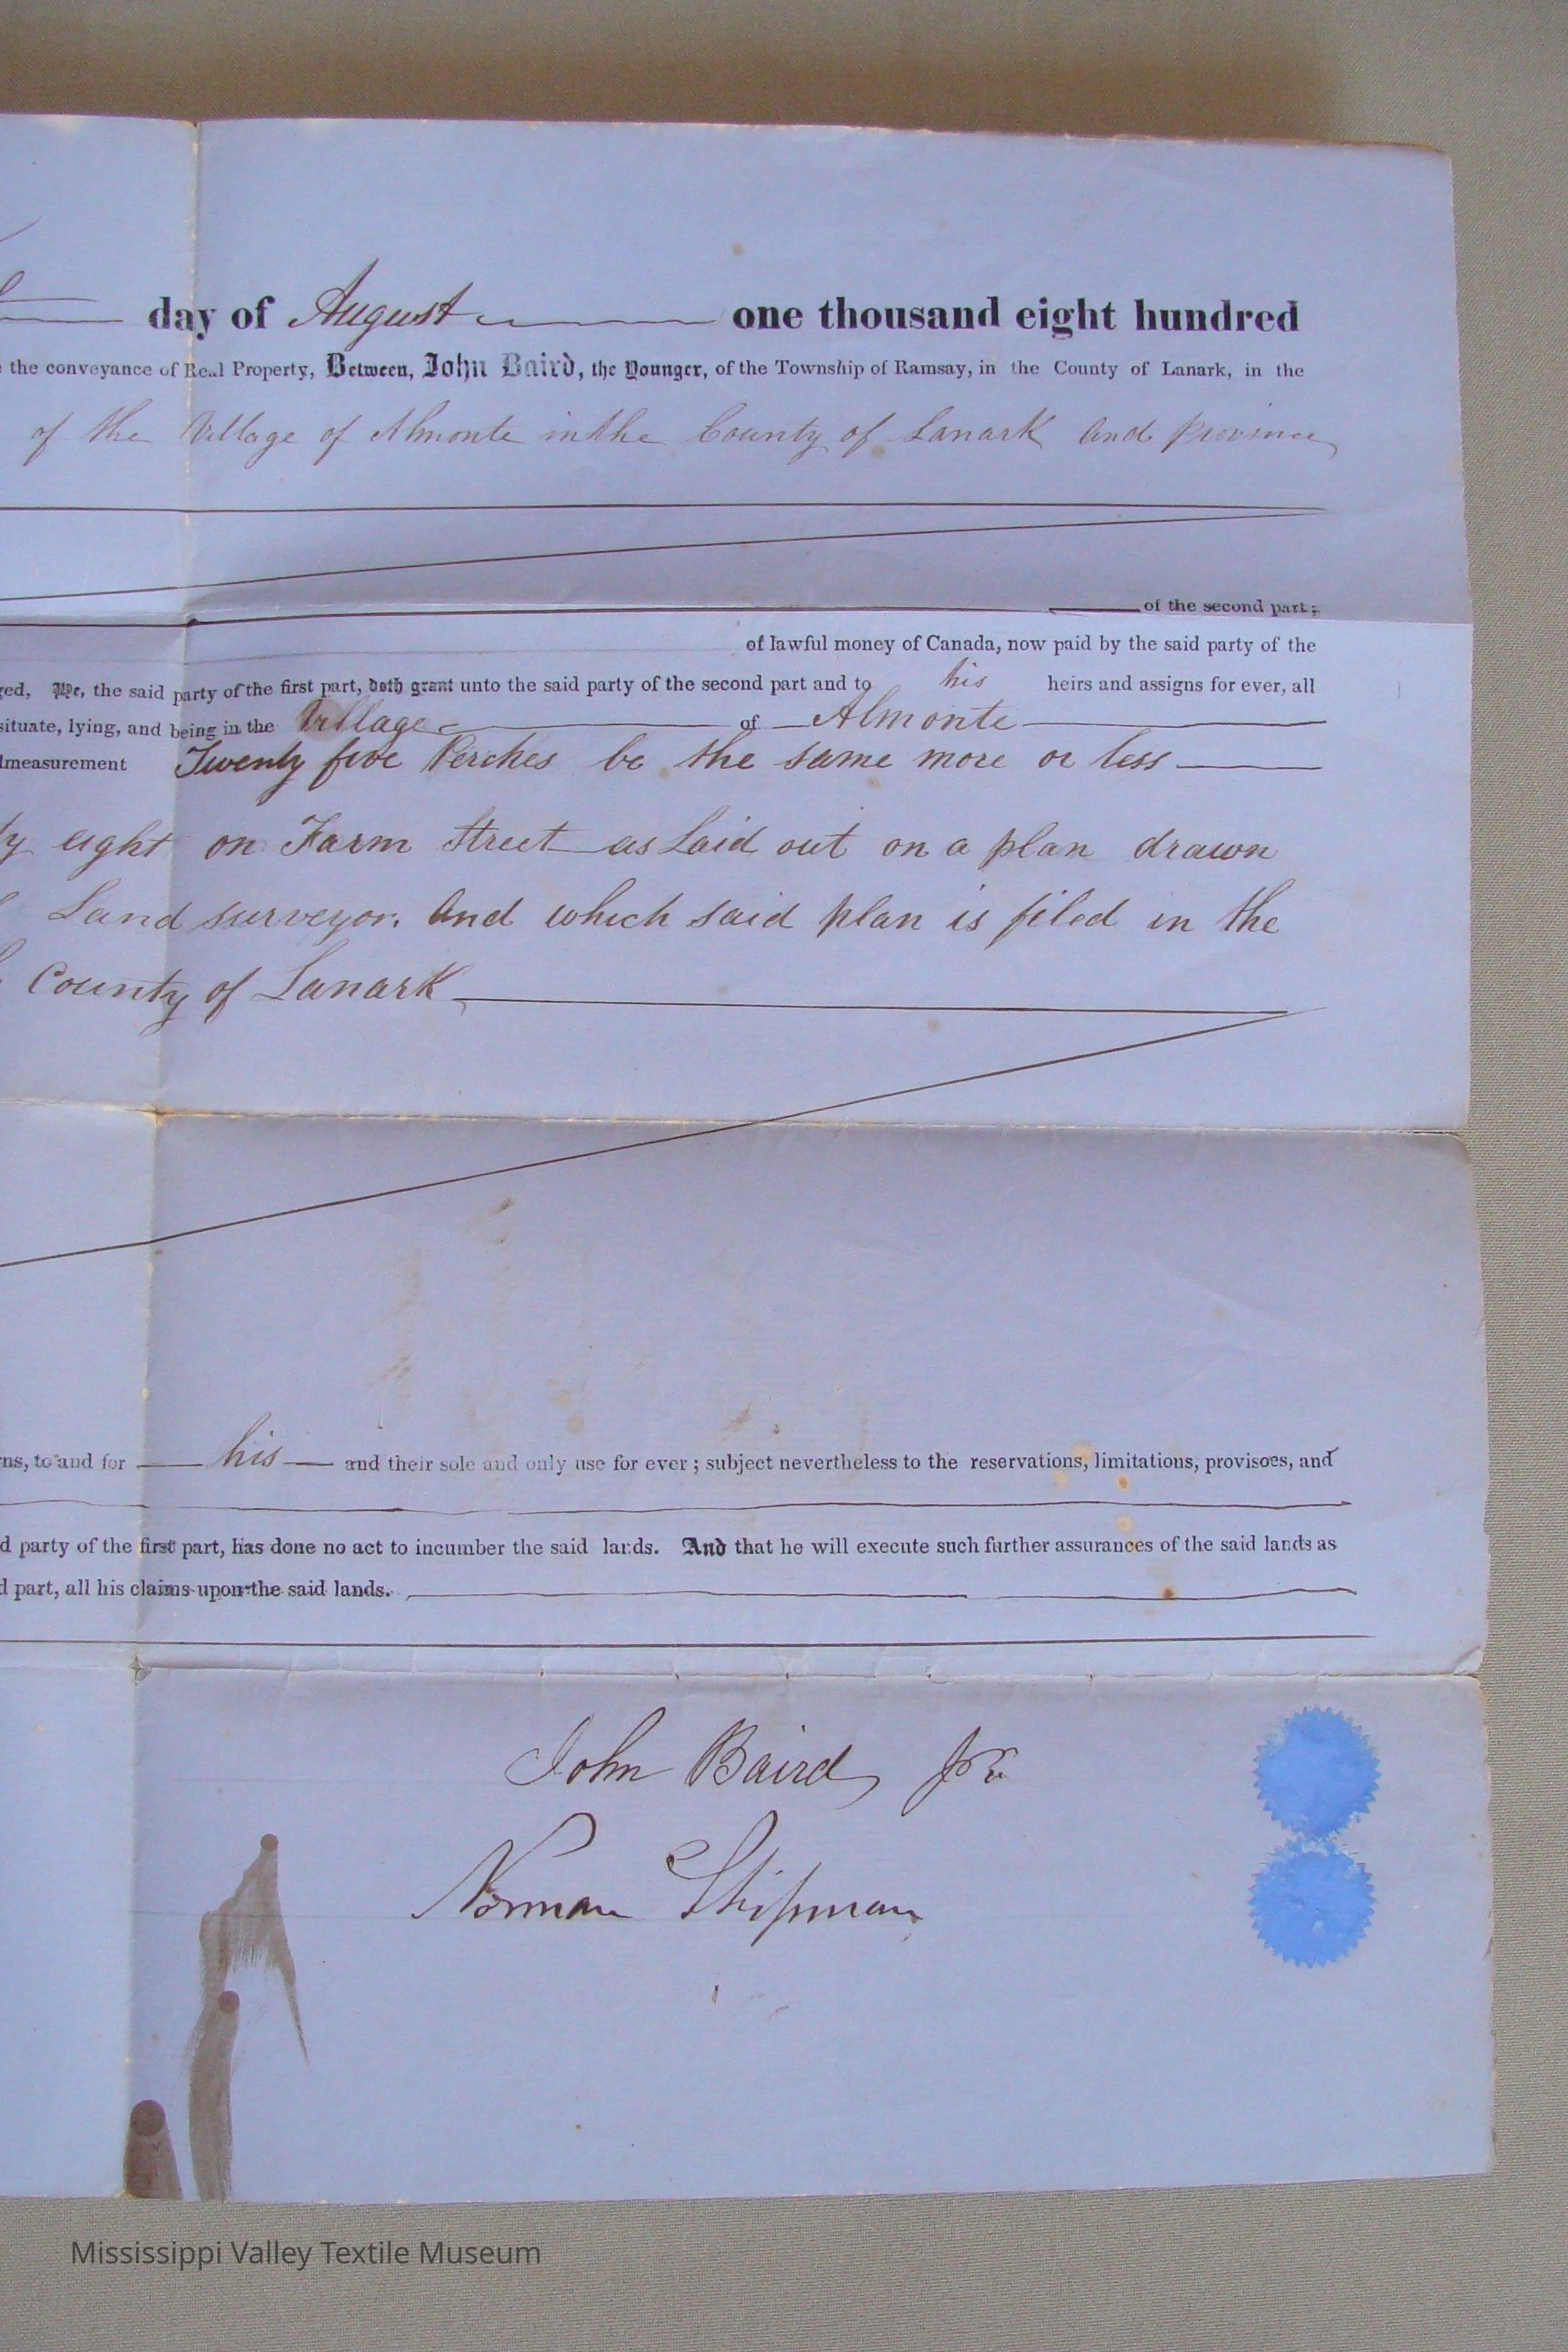 day of August one thousand eight hundred
the conveyance of Real Property, Between, John Baird, the Younger, of the Township of Ramsay, in the County of Lanark, in the
of the Village of Almonte in the County of Lanark and Province
of the second part;
of lawful money of Canada, now paid by the said party of the
ged, He, the said party of the first part, doth grant unto the said party of the second part and to his heirs and assigns for ever, all
situate, lying, and being in the Village of Almonte
dmeasurement Twenty five Perches be the same more or less
ty eight on Farm Street as Laid out on a plan drawn
Land surveyor. And which said plan is filed in the
County of Lanark
ns, to and for his and their sole and only use for ever; subject nevertheless to the reservations, limitations, provisoes, and
d party of the first part, has done no act to incumber the said lands. And that he will execute such further assurances of the said lands as
d part, all his claims upon the said lands.
John Baird Jr
Norman Shipman
Mississippi Valley Textile Museum